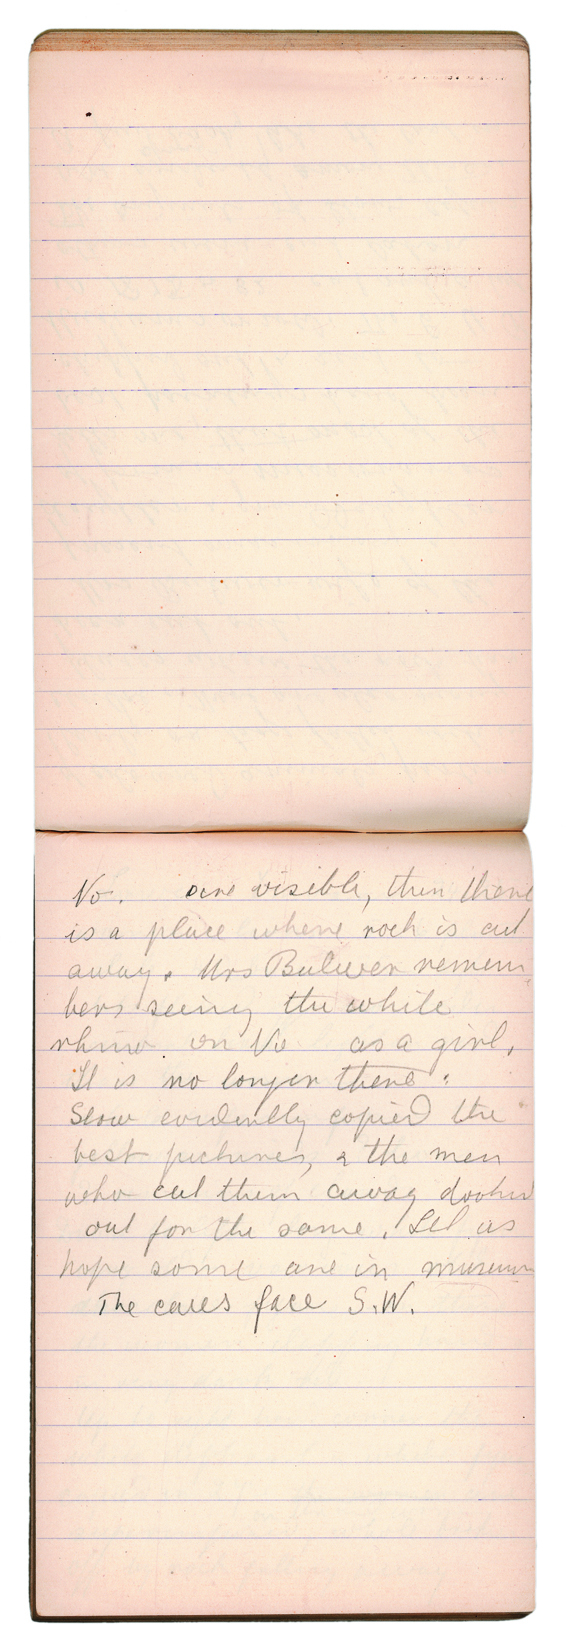 No.    are visible, then there
is a place where rock is cut
away. Mrs Bulwer remem
bers seeing the white
rhino on No    as a girl.
It is no longer there.
Stow evidently copied the
best pictures, & the men
who cut them away looked
out for the same. Let us
hope some are in museum
The caves face S.W.